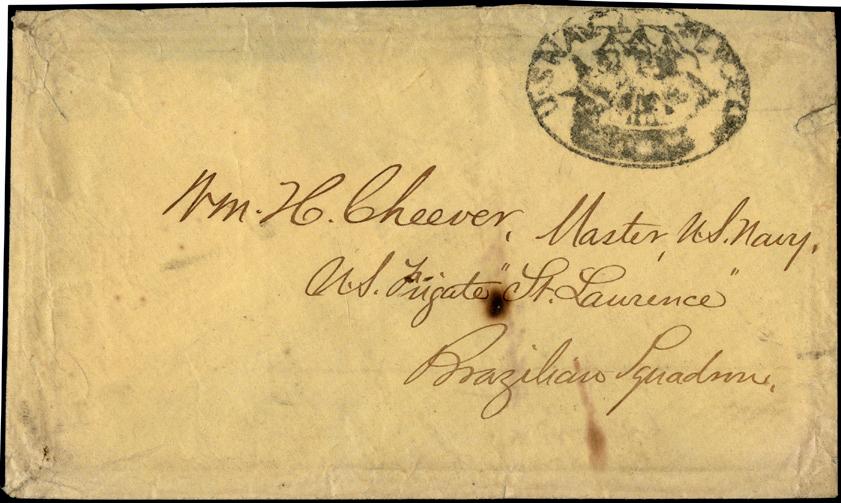 U.S. NAV
Wm. H. Cheever, Master, U.S. Navy,
U.S. Frigate "St. Laurence"
Brazilian Squadron.